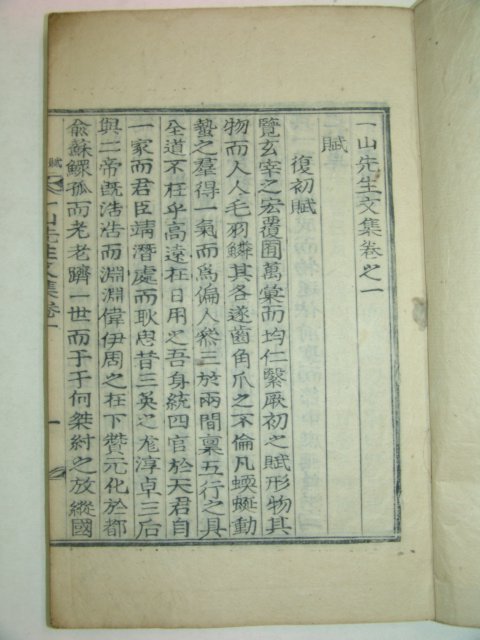 一山先生文集卷之一
賦
復初賦
覽玄宰之宏覆囿萬彙而均仁繄厥初之賦形物其
物而人人毛羽鱗其各遂齒角爪之不倫凡蝡蜒動
蟄之羣得一氣而爲偏人叅三於兩間稟五行之具
全道不在乎高遠在日用之吾身統四官於天君自
一家而君臣靖潛處而耿思昔三英之尨淳卓三后
與二帝旣浩浩而淵淵偉伊周之在下贊元化於都
兪蘇鰥孤而老老躋一世而于于何桀紂之放縱國
賦 一山先生文集卷一
一